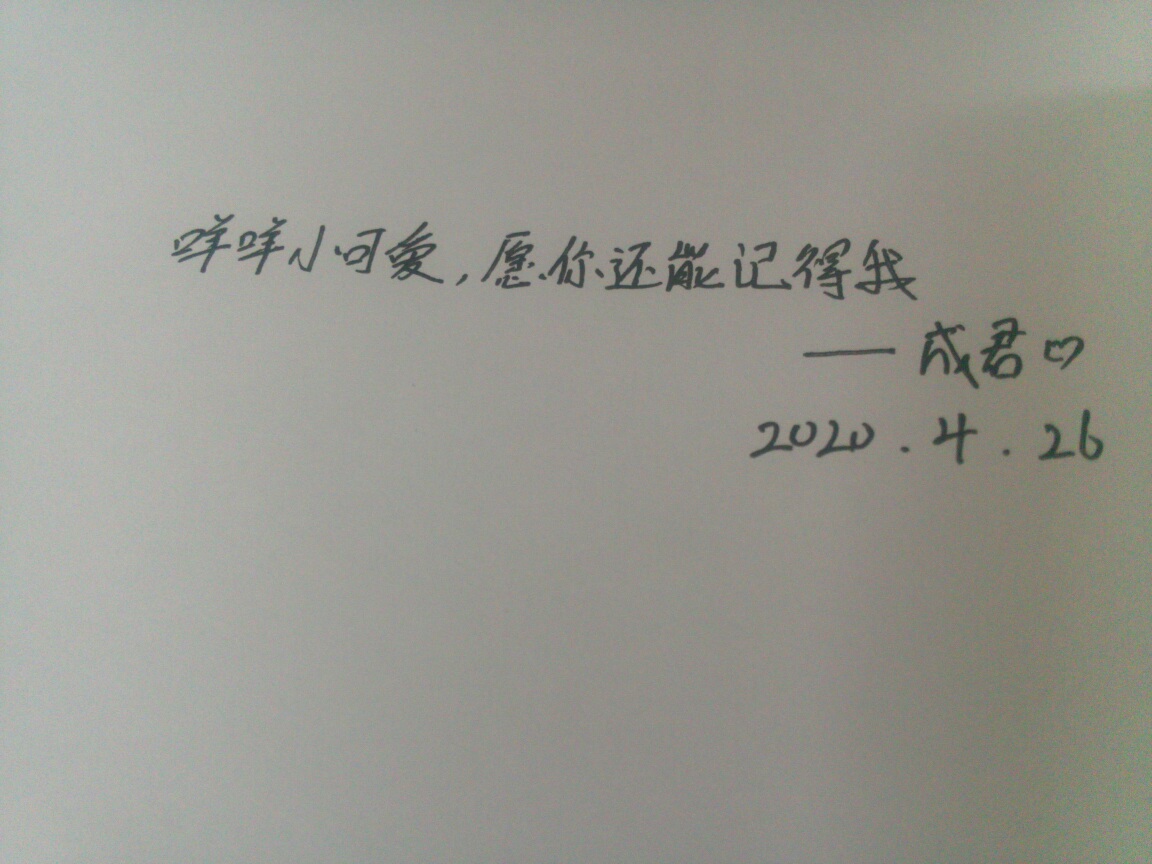 咩咩小可爱,愿你还能记得我
——成君♡
2020.4.26